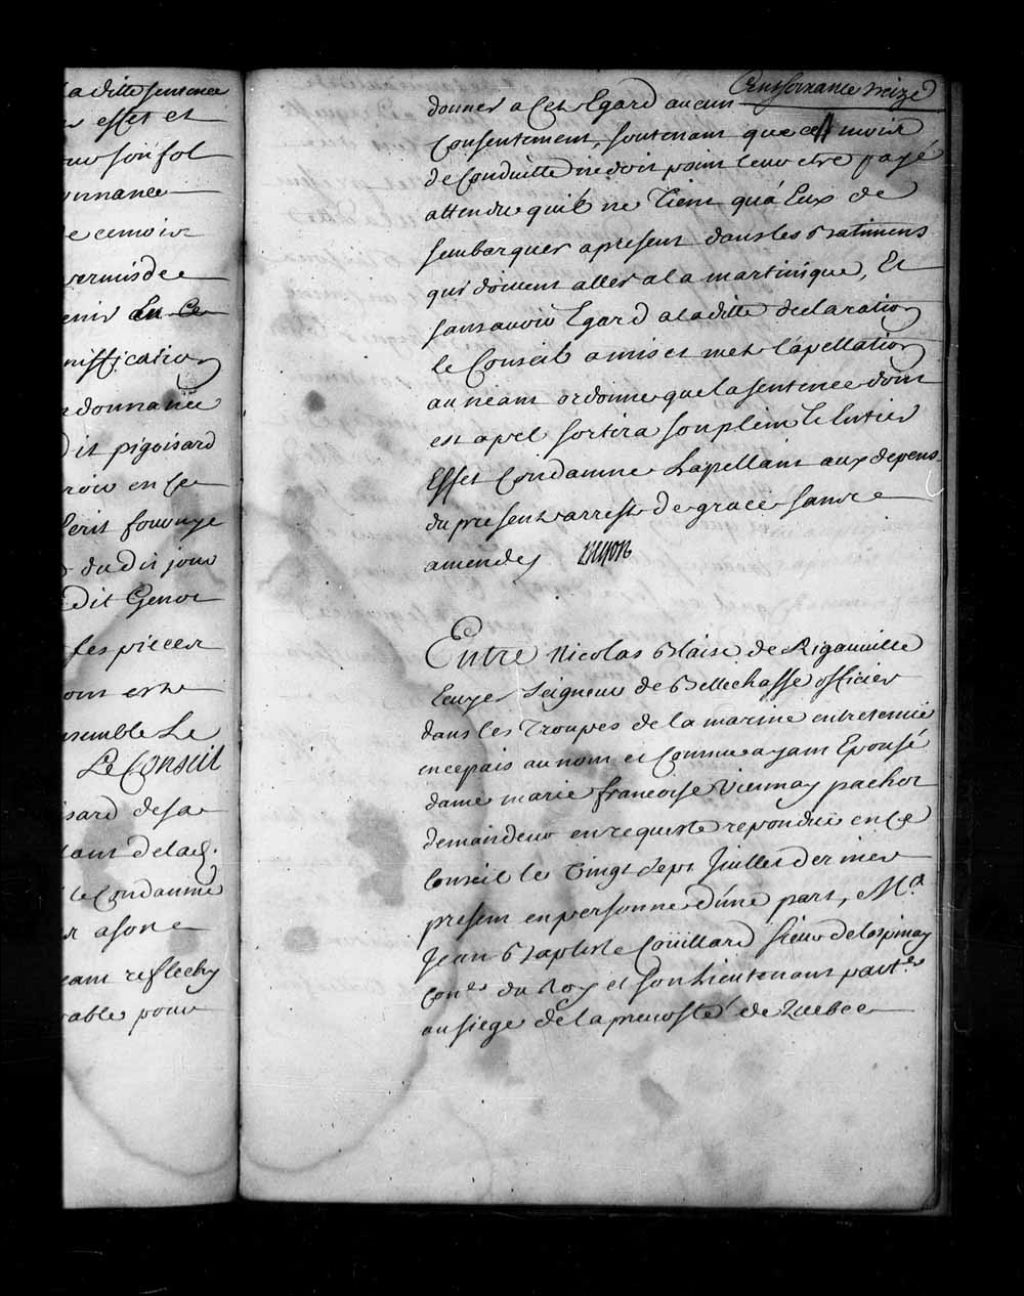 la ditte sentence
effet et
sol
onnance
ce mois
permis de
enir En Ce
niffication
donnance
dit pigoisard
en Ce
du dit jour
dit Genor
les pieces
semble Le
Le Conseil
sard de sa
tant de la
le Condamne
r a son
eant reflechy
able pour
Cent soixante treize
donner a Cet Egard aucun
Consentement, soutenant que ces mois
de Conduitte ne doit point leur etre payé
attendu quil ne Tient qu'a Eux de
sembarquer apresent dans les batimens
qui doivent aller a la martinique, Et
sans avoir Egard a la ditte declaration
le Conseil a mis et met l'apellation
au neant ordonne que la sentence dont
est apel sortira son plein Et Entier
Effet Condamne Lapellant aux depens
du present arrest de grace sans
amende
Entre Nicolas Blaise de Rigauville
Ecuyer Seigneur de Bellechasse officier
dans les Troupes de la marine entretenue
en ce pais au nom et Comme ayant Epousé
dame marie francoise Viennay pachot
demandeur en requeste repondue en Ce
Conseil le Vingt Sept Juillet dernier
present en personne d'une part, Et Me
Jean Baptiste Coüillard sieur de Lespinay
Coner du Roy et son Lieutenant parter
au siege de la prevosté de Quebec